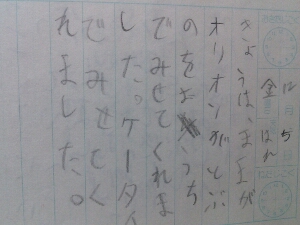 12
金 はれ
きょうは、ままが
オリオンがとぶ
のをおうち
でみせてくれま
した。ケータイ
でみせてく
れました。